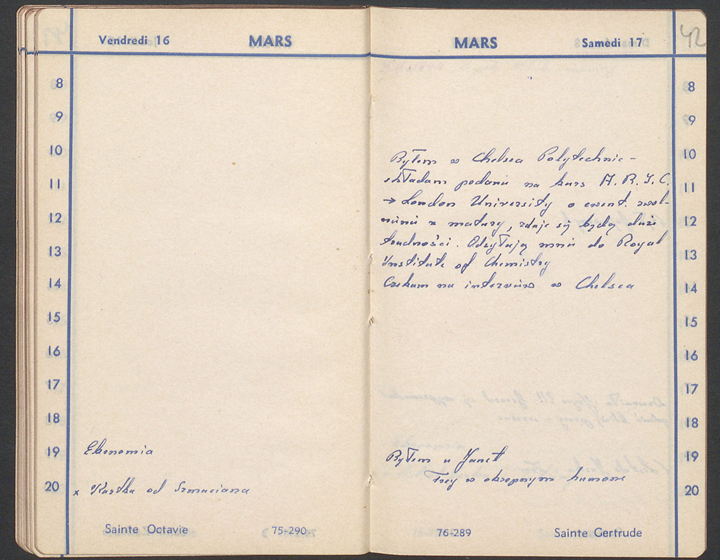 Vendredi 16 MARS
8
9
10
11
12
13
14
15
16
17
18
19 Ekonomia
20 x Kartka od Szmaciana
Sainte Octavie 75-290
MARS Samedi 17
42
8
9
10
11
12
13
14
15
16
17
18
19
20
Byłem w Chelsea Polytechnic -
składam podanie na kurs A.R.I.C.
→ London University o ewent. zwol-
nienie z matury, zdaje się będą duże
trudności. Odsyłają mnie do Royal
Institute of Chemistry
Czekam na interview w Chelsea
Byłem u Janet
Trey w okropnym humorze
76-289 Sainte Gertrude